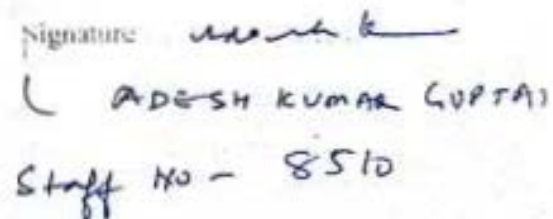 Signature
( ADESH KUMAR GUPTA)
Staff NO - 8510